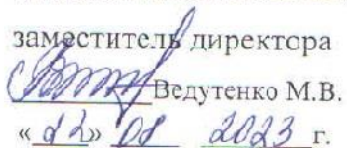 заместитель директора
Ведутенко М.В.
«22» 08 2023 г.